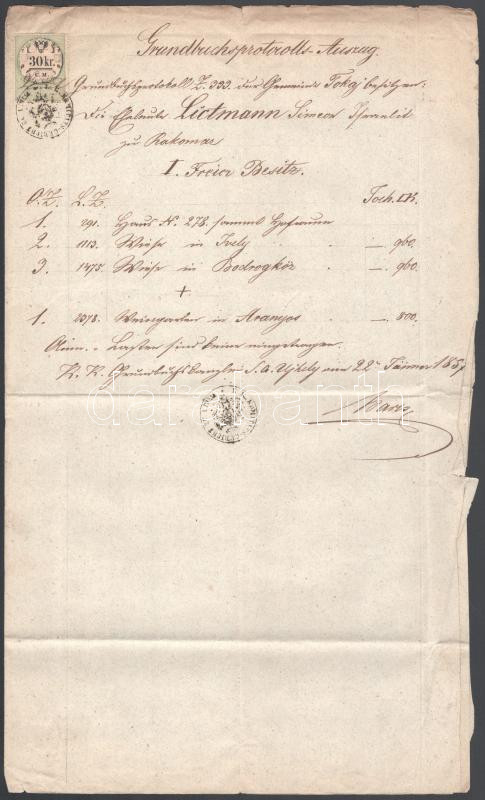 Grundbuchsprotocolls-Auszug.
30 kr.
C.M.
Grundbuchsprotokoll Z. 333. der Gemeinde Tokaj besitzen:
Die Eheleute Lictmann Simeon Israelit
zu Rakomaz
I. Freier Besitz.
O.Z. L.Z. Joch. □K.
1. 291. Haus N. 278. sammt Hofraum
2. 1113. Wiese in — 960.
3. 1475. Wiese in Bodrogköz — 960.
+
1. 2378. Weingarten in Aranyos — 800.
Anm. Lasten sind keine eingetragen.
K. K. Grundbuchskanzlei S. a. Ujhely am 22 Jänner 1857
darabanth